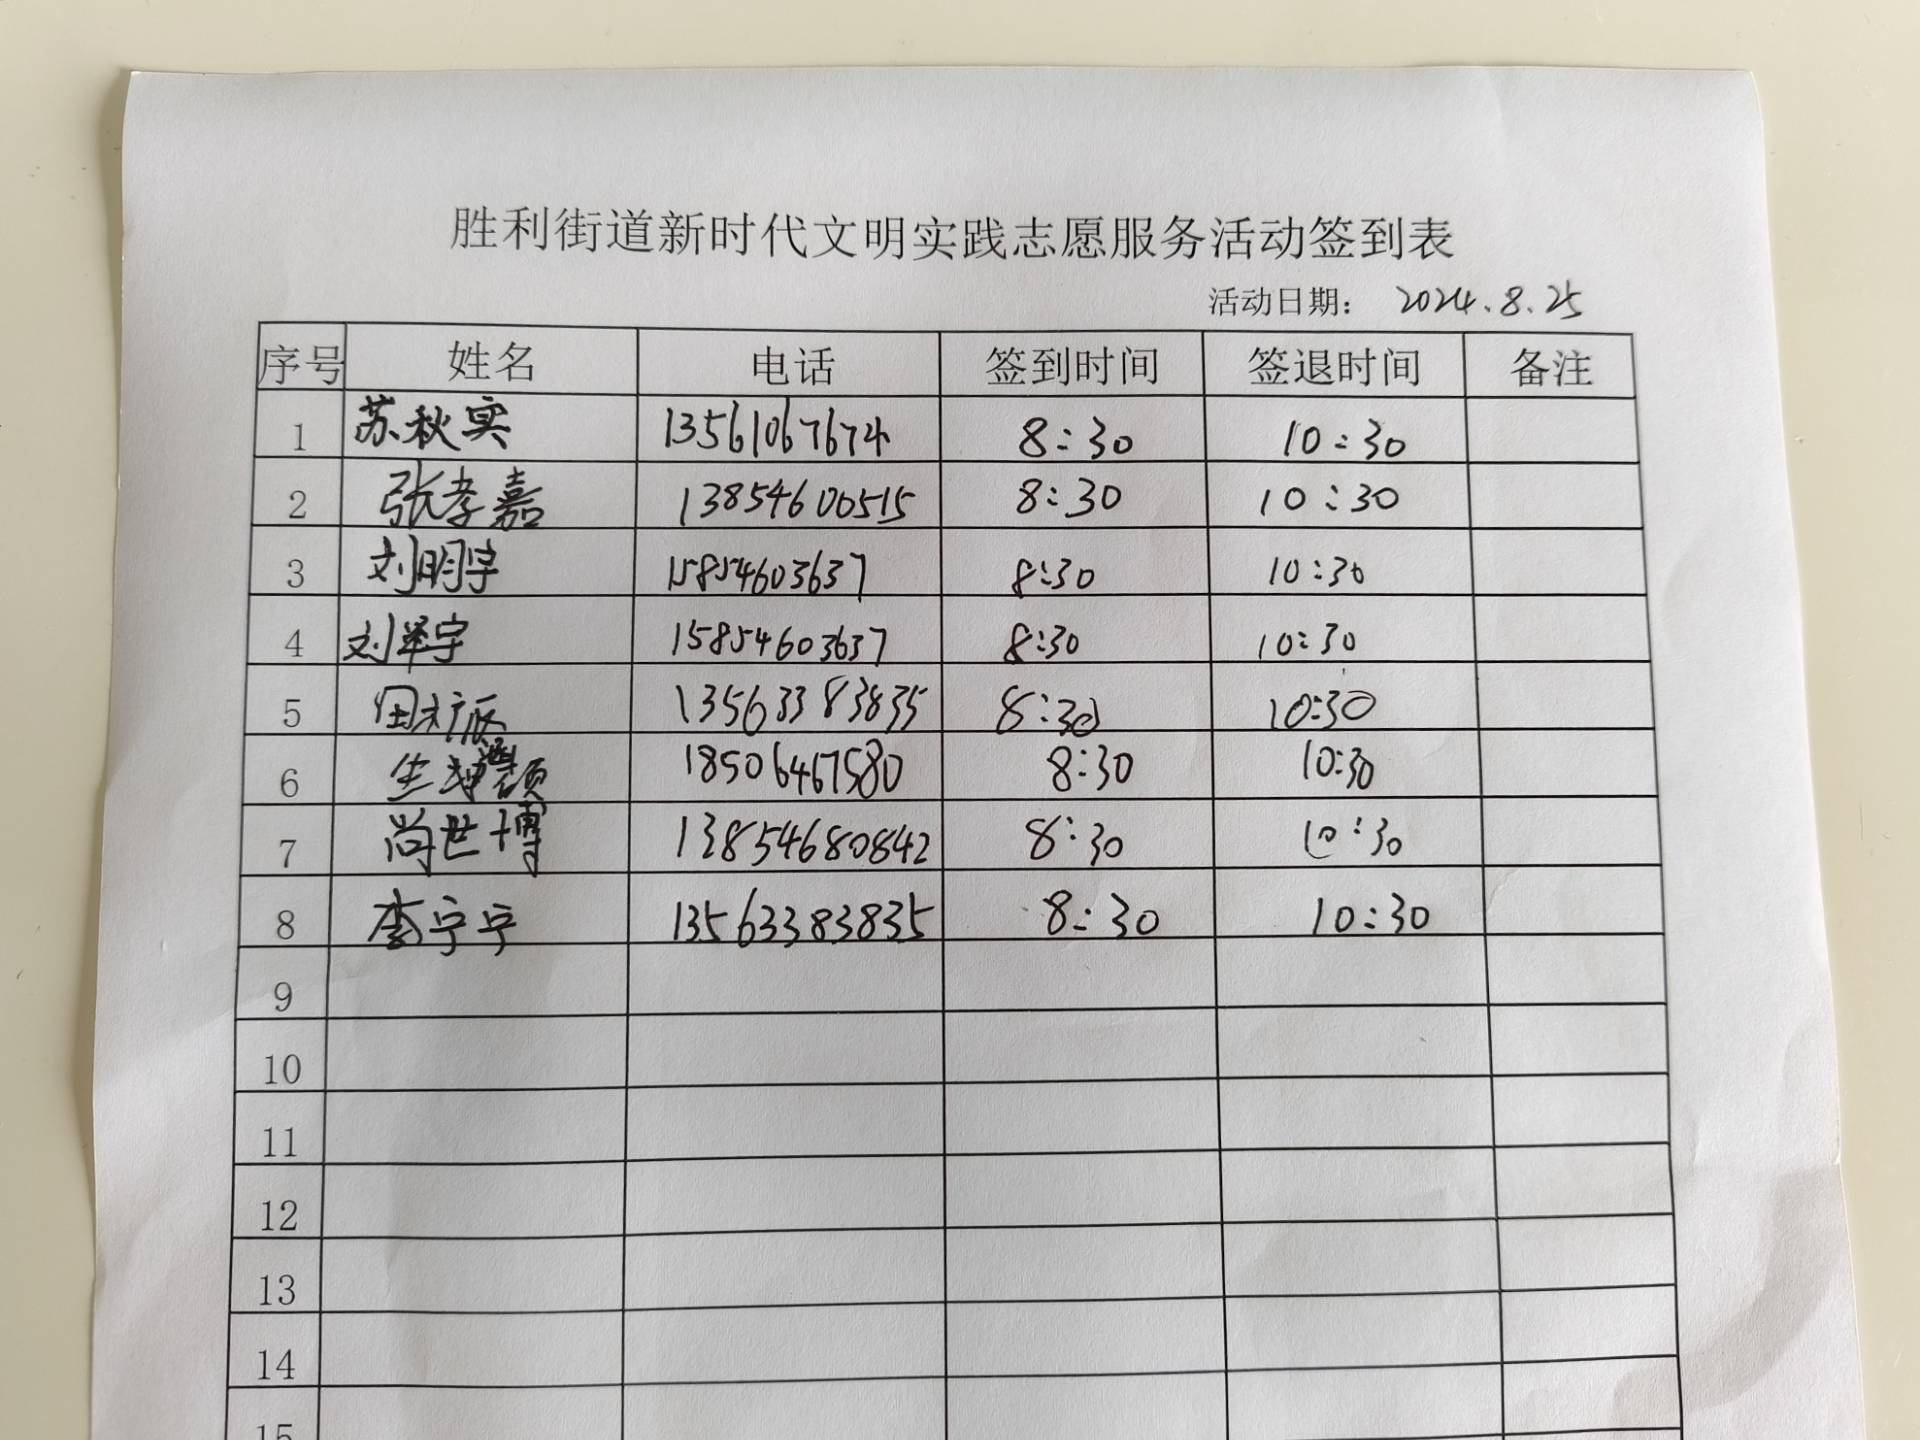 胜利街道新时代文明实践志愿服务活动签到表
活动日期： 2024.8.25
序号 姓名 电话 签到时间 签退时间 备注
1 苏秋实 13561067674 8:30 10:30
2 张孝嘉 13854600515 8:30 10:30
3 刘明宇 15854603637 8:30 10:30
4 刘泽宇 15854603637 8:30 10:30
5 13563383835 8:30 10:30
6 18506467580 8:30 10:30
7 尚世博 13854680842 8:30 10:30
8 李宁宁 13563383835 8:30 10:30
9
10
11
12
13
14
15